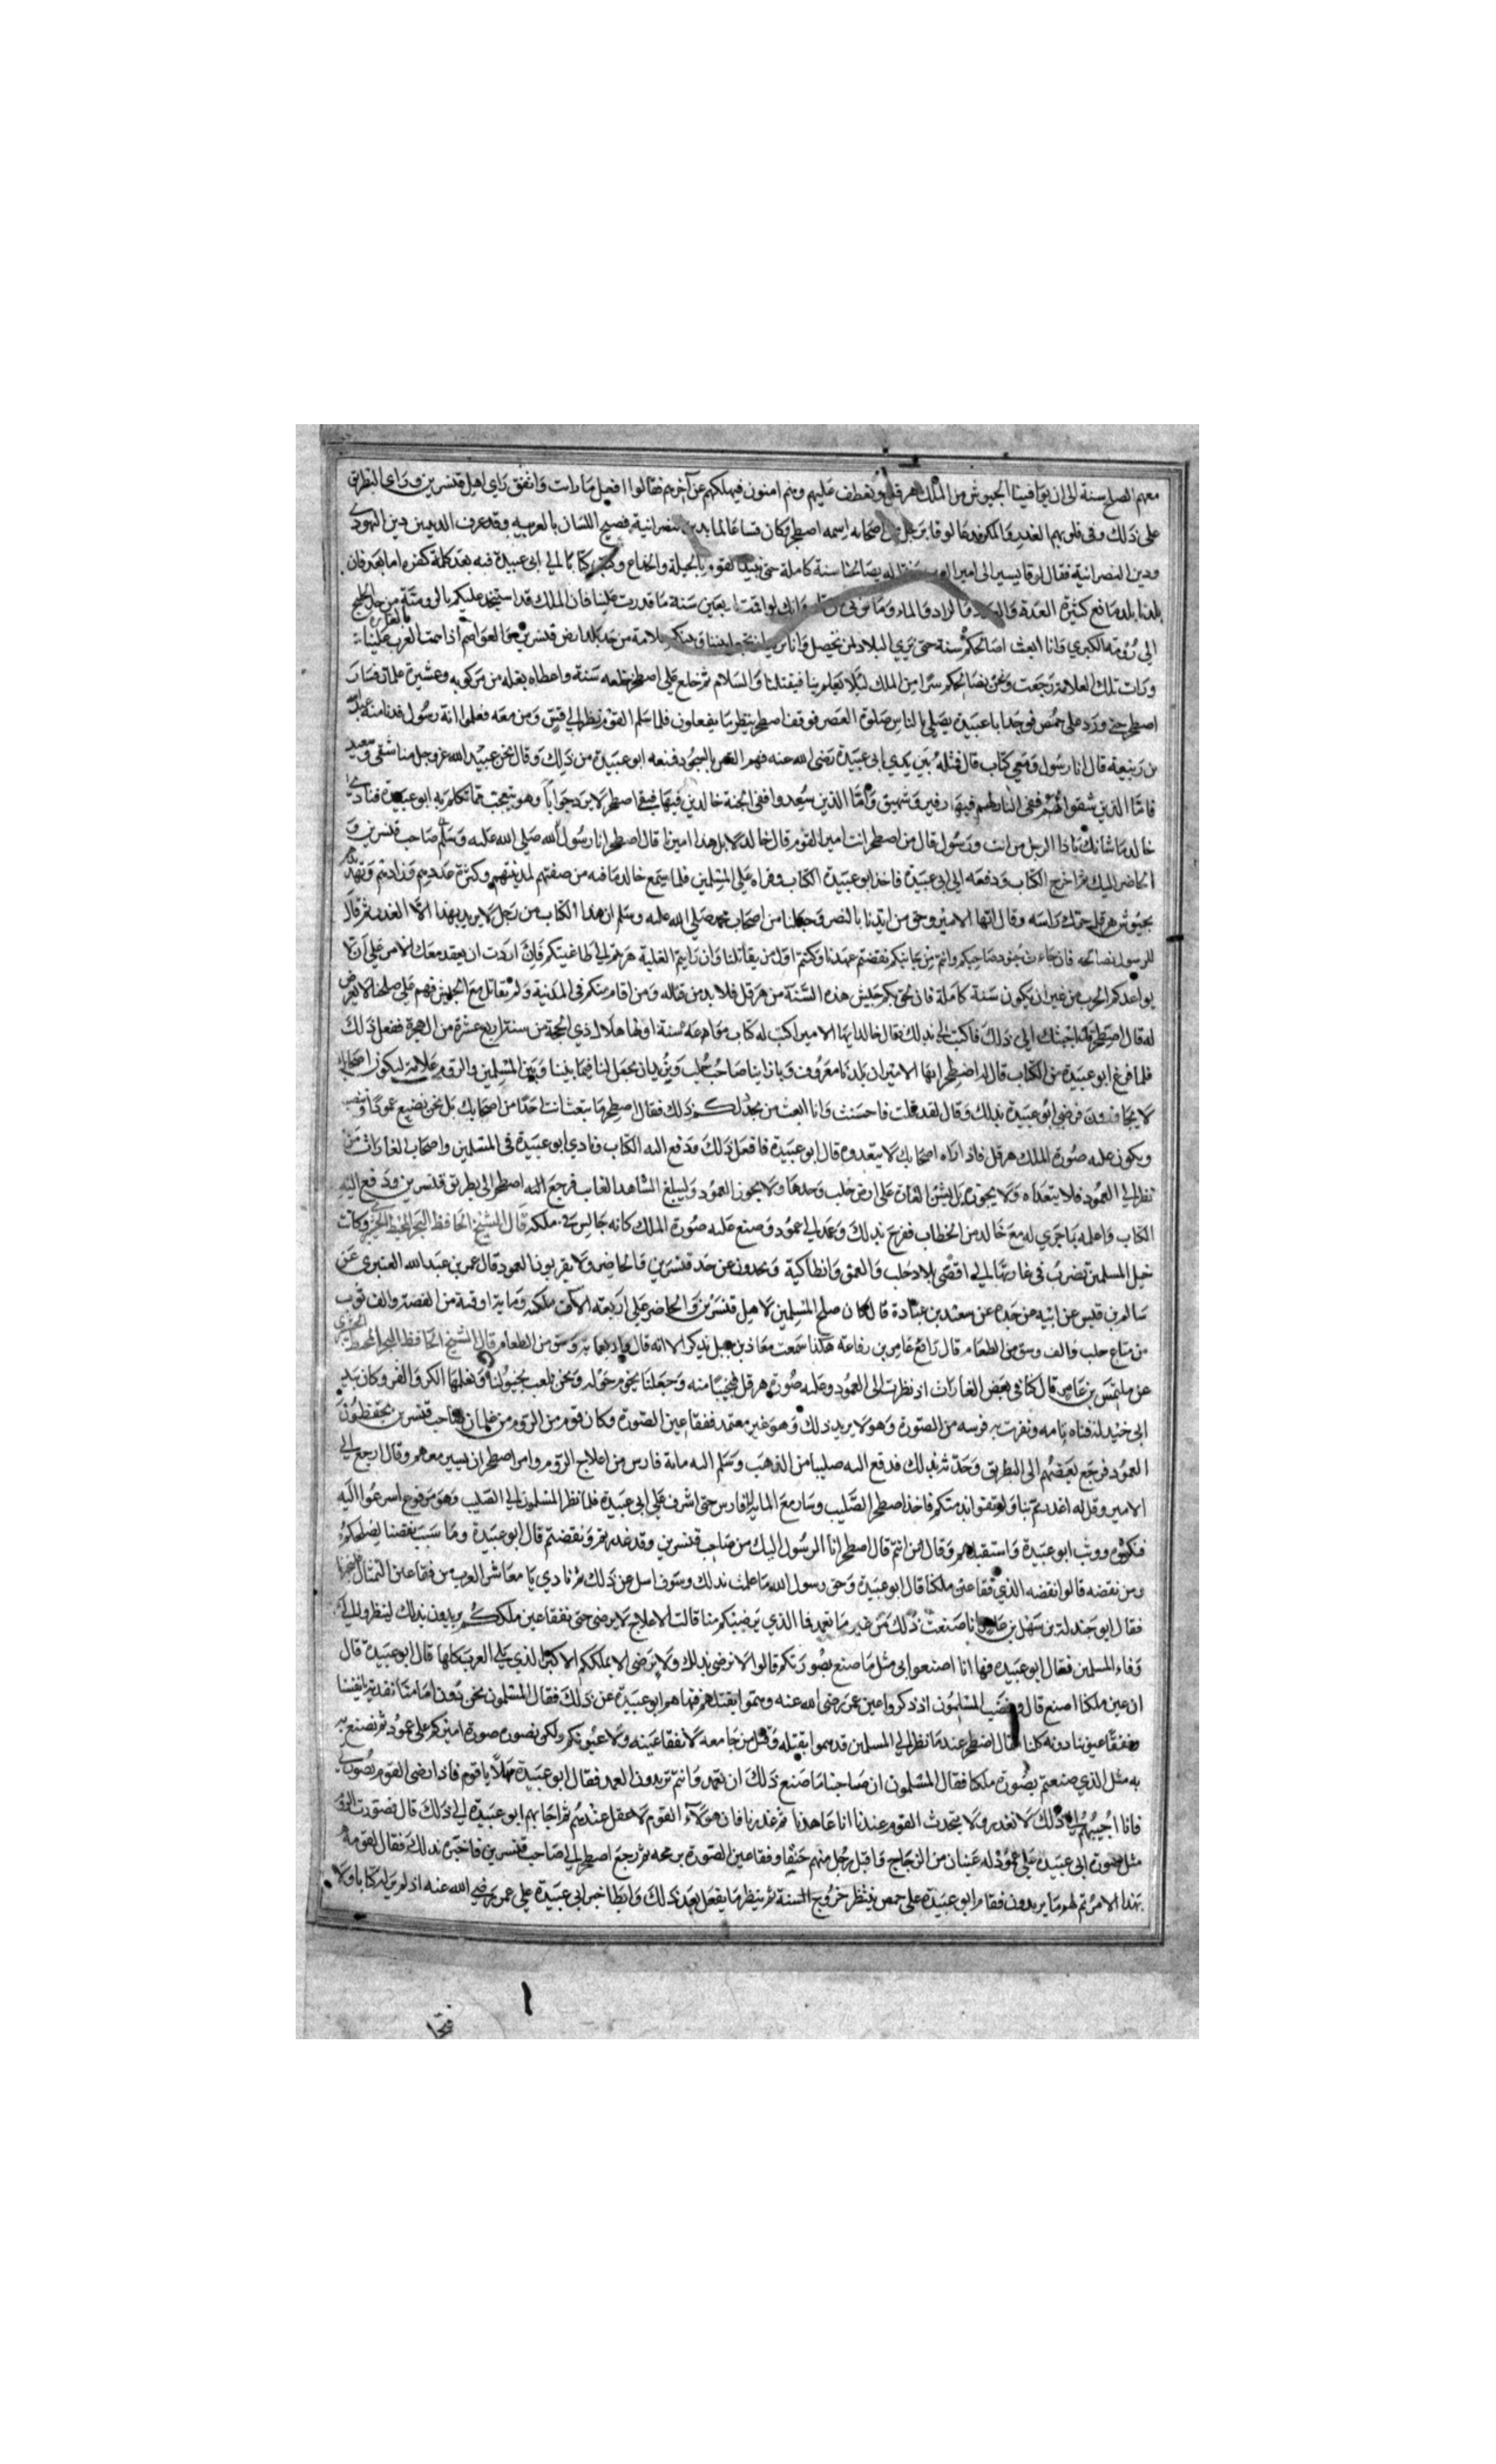 معهم الصلح سنة الى ان يوافينا الجيوش من الملك هرقل ونعطف عليهم وهم امنون فيهلكهم عن آخرهم فقالوا افعل ما رات واتفق راي اهل قنسرين وراي البطريق
على ذلك وفى قلوبهم الغدر والمكر فدعا لوقا برجل من اصحابه اسمه اصطخر وكان قسا عالما بدين النصرانية فصيح اللسان بالعربيه وقد عرف الدينين دين اليهودى
ودين النصرانية فقال لوقا يسير الى امير العرب له يصالحنا سنة كاملة حتى القوم بالحيلة والخداع وكتب كتابا الى ابى عبيدة فيه بعد كلمة كفره اما بعد فان
بلدنا بلد مانع كثيرة العدة والعدد والزاد والماء وانك لو اقمت سنة ما قدرت علينا فان الملك قد استنجد عليكم بالرومية من حد الخليج
الى رومة الكبرى وانا ابعث اصالحكم سنة حتى نرى البلاد لمن تحصل وانا نريد بيننا وبينكم علامة من حد بلد ارض قنسرين والعواصم اذا همت العرب علينا بالغارة
ورات تلك العلامة رجعت ونحن نصالحكم سرا من الملك ليلا يعلم بنا فيقتلنا والسلام ثم خلع على اصطخر خلعه سنة واعطاه بغله من مركوبه وعشرة غلمان فسار
اصطخر حتى ورد على حمص فوجد ابا عبيدة يصلى بالناس صلوة العصر فوقف اصطخر ينظر ما يفعلون فلما سلم القوم نظر الى قس ومن معه فعلموا انه رسول فدنا منه عبدالله
بن ربيعة قال انا رسول ومعى كتاب قال فمثله بين يدي ابى عبيدة رضى الله عنه فهم القس بالسجود فمنعه ابو عبيدة من ذلك وقال نحن عبيد الله عز وجل منا شقى وسعيد
فاما الذين شقوا ففى النار لهم فيها زفير وشهيق واما الذين سعدوا ففى الجنة خالدين فيها فبقى اصطخر لا يرد جوابا وهو يتعجب مما تكلم به ابو عبيدة فناداه
خالد ما شانك يا ذا الرجل من انت ورسول قال من اصطخر انت امير القوم قال خالد لا بل هذا اميرنا قال اصطخر انا رسول صاحب قنسرين و
الحاضر اليك ثم اخرج الكتاب ودفعه الى ابى عبيدة فاخذ ابو عبيدة الكتاب وقراه على المسلمين فلما سمع خالد ما فيه من صفتهم لمدينتهم وكثرة عددهم وزادهم وتهدده
بجيوش هرقل حرك راسه وقال ايها الامير وحق من ايدنا بالنصر وجعلنا من اصحاب محمد صلى الله عليه وسلم ان هذا الكتاب من رجل لا يريد بهذا الا الغدر ثم قال
للرسول نصالحه فان جاءت جنود صاحبكم وانتم من جانبكم نقضتم عهدنا وكنتم اول من يقاتلنا وان رايتم الغلبة هربتم الى طاغيتكم فان اردت ان يعقد معك الامير على ان لا
يواعدكم الحرب من غير ان يكون سنة كاملة فان لحق بكم جيش هذه السنة من هرقل فلا بد من قتاله ومن اقام منكم فى المدينة ولم يقاتل مع الجيش فهم على صلحنا لا نعرض
له قال اصطخر قد اجبتك الى ذلك فاكتب لى بذلك فقال خالد ايها الامير اكتب له كتاب موادعة سنة اولها هلال ذي الحجة من سنة اربع عشرة من الهجرة ففعل ذلك
فلما فرغ ابو عبيدة من الكتاب قال له اصطخر ايها الامير ان بلدنا معروف وبازاينا صاحب حلب ونريد ان تجعل لنا فيما بيننا وبين المسلمين والروم علامة ليكون اصحابك
لا يجاوزون فرضى ابو عبيدة بذلك وقال لقد قلت فاحسنت وانا ابعث من يحد لك ذلك فقال اصطخر ما تبعث انت احدا من اصحابك بل نحن نصنع عمودا وننصب
ويكون عليه صورة الملك هرقل فاذا راه اصحابك لا يتعدوه قال ابو عبيدة فافعل ذلك ودفع اليه الكتاب ونادى ابو عبيدة فى المسلمين واصحاب الغارات من
نظر الى العمود فلا يتعداه ولا يجوزه بل يشن الغارات على ارض حلب وحدها ولا يجوز العمود وليبلغ الشاهد الغايب فرجع اليه اصطخر الى بطريق قنسرين ودفع اليه
الكتاب واعلمه بما جرى له مع خالد من الخطاب ففرح بذلك وعمد الى عمود وصنع عليه صورة الملك كانه جالس فى ملكه قال الشيخ الحافظ وكانت
خيل المسلمين تضرب فى غاراتها الى اقصى بلاد حلب والعمق وانطاكية ويحدون عن حد قنسرين والحاضر ولا يقربون العمود قال عمر بن عبد الله العنبرى عن
سالم بن قيس عن ابيه عن جده عن سعد بن عبادة قال كان صلح المسلمين لاهل قنسرين والحاضر على اربعة الاف ملكه وماية اوقية من الفضة والف ثوب
من متاع حلب والف وسق من الطعام قال رافع عامر بن رفاعه هكذا سمعت معاذ بن جبل يذكر الا انه قال واربعماية وسق من الطعام قال الشيخ الحافظ
عن ملتمس بن عامر قال كنا فى بعض الغارات اذ نظرت الى العمود وعليه صورة هرقل فعجبنا منه وجعلنا نحوم حوله ونحن نلعب بخيولنا ونعلمها الكر والفر وكان بيد
ابى جندلة قناه تامه ونفرت به فرسه من الصورة وهو لا يريد ذلك وهو غير معتمد ففقا عين الصورة وكان قوم من الروم من غلمان صاحب قنسرين يحفظون
العمود فرجع بعضهم الى البطريق وحدثه بذلك فدفع اليه صليبا من الذهب وسلم اليه ماية فارس من اعلاج الروم وامر اصطخر ان يسير معهم وقال ارجع الى
الامير وقل له اغدرتم بنا ولم تفوا بذمتكم فاخذ اصطخر الصليب وسار مع الماية الفارس حتى اشرف على ابى عبيدة فلما نظر المسلمون الى الصليب وهو مرفوع اسرعوا اليه
فنكسوه ووثب ابو عبيدة واستقبلهم وقال من انتم قال اصطخر انا الرسول اليك من صاحب قنسرين وقد غدرتم ونقضتم قال ابو عبيدة وما سبب نقضنا لصلحكم
ومن نقضه قالوا نقضه الذي فقا عين ملكنا قال ابو عبيدة وحق رسول الله ما علمت بذلك وسوف اسل عن ذلك ثم نادي يا معاشر العرب من فقا عين التمثال
فقال ابو جندلة بن سهل بن انا صنعت ذلك من غير ما تعمد فما الذي يرضيكم منا قالت الاعلاج لا نرضى حتى نفقا عين ملككم يريدون بذلك لينظروا الى
وفاء المسلمين فقال ابو عبيده فها انا اصنعوا بى مثل ما صنع بصورتكم قالوا لا نرضى بذلك ولا نرضى الا بملككم الاكبر الذي يلى العرب كلها قال ابو عبيدة قال
ان عين ملكنا امنع قال وغضب المسلمون اذ ذكروا عين عمر رضى الله عنه وهموا بقتلهم فنهاهم ابو عبيدة عن ذلك فقال المسلمون نحن دون امامنا نفديه بانفسنا
ونفقا عيوننا دونه كلنا قال اصطخر عندما نظر الى المسلمين قد هموا بقتله وقتل من جا معه لا نفقا عينه ولا عيونكم ولكن نصور صورة اميركم على عمود ثم نصنع به
به مثل الذي صنعتم بصورة ملكنا فقال المسلمون ان صاحبنا ما صنع ذلك ان تعمد وانتم تريدون العمد فقال ابو عبيدة مهلا يا قوم فاذا رضى القوم بصورتى
فانا اجيبهم الى ذلك لا نغدر ولا يتحدث القوم عندنا انا عاهدنا ثم غدرنا فان هولاء القوم لا عقل عندهم ثم اجابهم ابو عبيدة الى ذلك قال فصورت الروم
مثل صورة ابى عبيده على عمود له عينان من الزجاج واقبل رجل منهم حنقا وفقا عين الصورة برمحه ثم رجع اصطخر الى صاحب قنسرين فاخبره بذلك فقال لقومه
بهذا الامر تم لهم ما يريدون فقام ابو عبيدة على حمص ينتظر خروج السنة ثم ينتظر ما يفعل بعد ذلك وابطا خبر ابى عبيدة على عمر رضى الله عنه اذ لم ير له كتابا ولا
فتحا